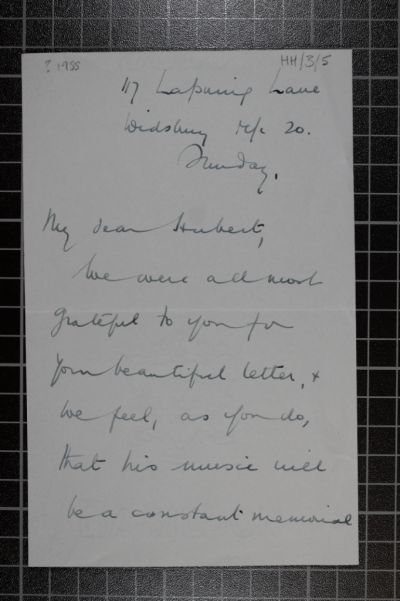 ? 1955
HH/3/5
117 Lapwing Lane
Didsbury M/c 20.
Sunday.
My dear Hubert,
We were all most
grateful to you for
your beautiful letter, &
we feel, as you do,
that his music will
be a constant memorial